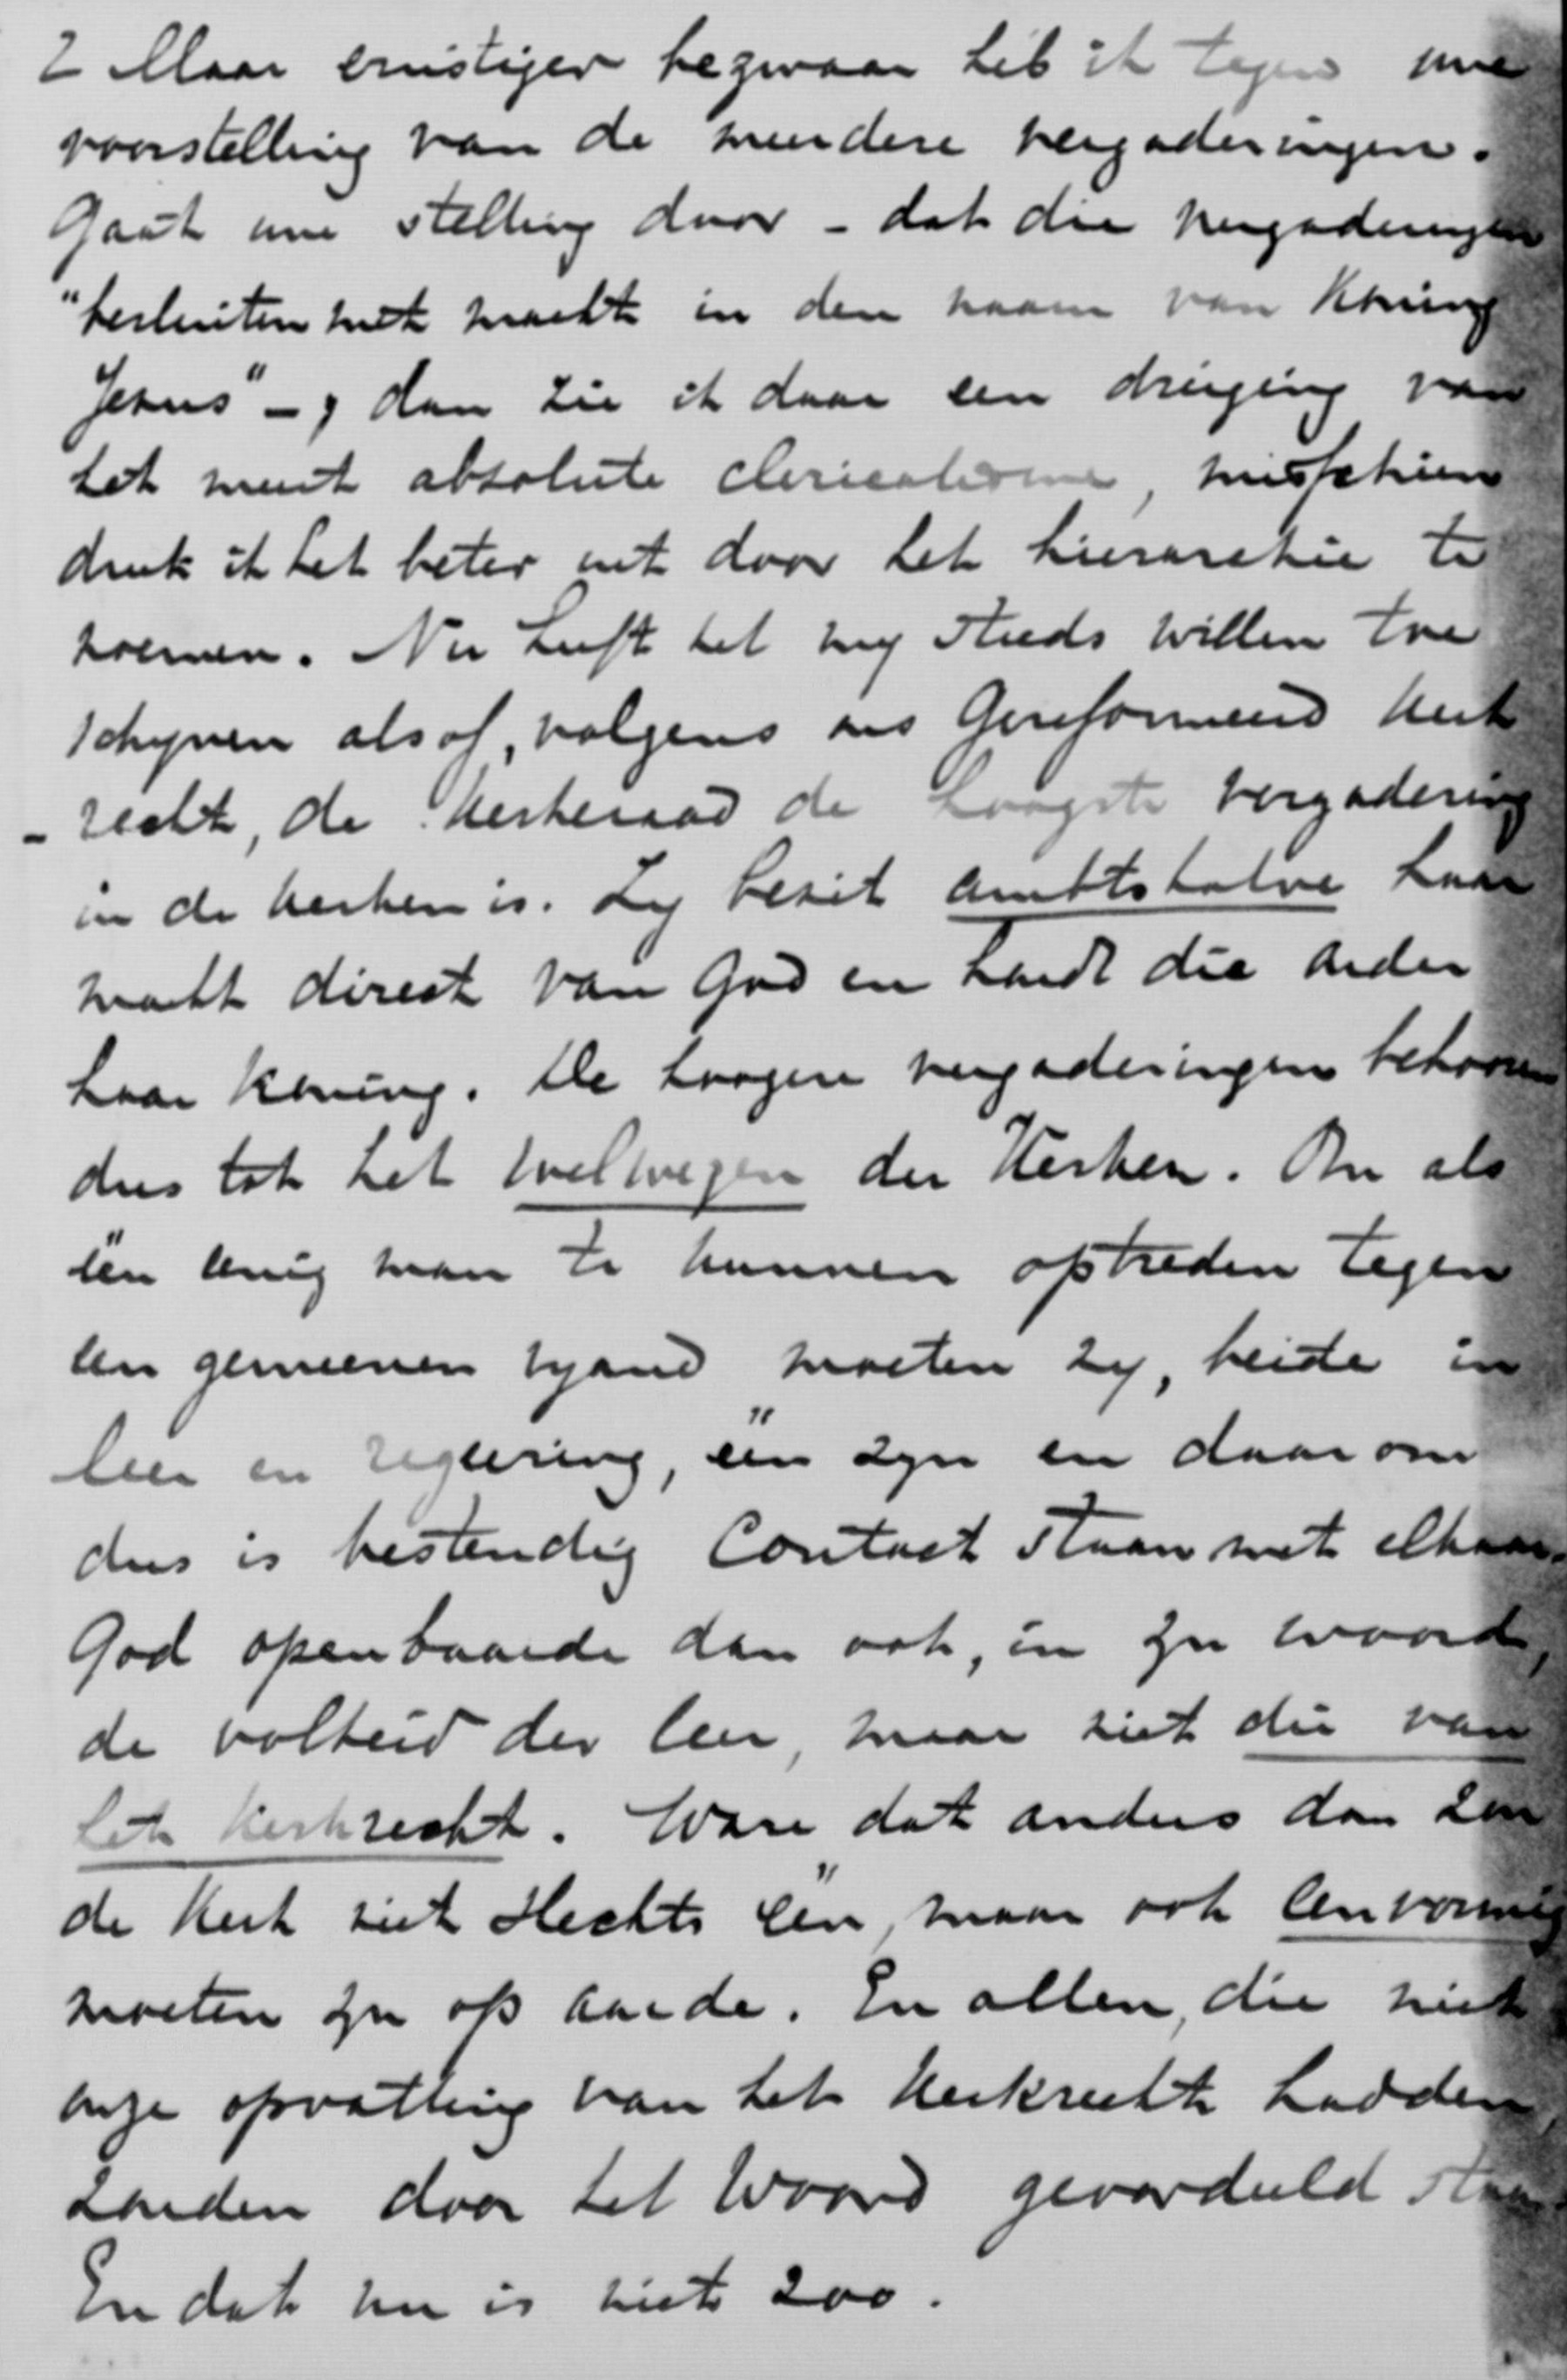 2 Maar ernstiger bezwaar heb ik tegen uwe
voorstelling van de meerdere vergaderingen.
Gaat uwe stelling door - dat die vergaderingen
"besluiten met macht in den naam van Koning
Jezus" -, dan zie ik daar een dreiging van
het meest absolute clericalisme, misschien
druk ik het beter uit door het hierarchie te
noemen. Nu heeft het my steeds willen toe
schynen alsof, volgens ons Gereformeerd Kerk
- recht, de Kerkeraad de hoogste vergadering
in de kerken is. Zy bezit ambtshalve haar
macht direct van God en houdt die onder
haar Koning. De hoogere vergaderingen behooren
dus tot het welwezen der Kerken. Om als
één eenig man te kunnen optreden tegen
een gemeenen vyand moeten zy, beide in
leer en regeering, één zyn en daarom
dus is bestendig Contact staan met elkaar.
God openbaarde dan ook, in zyn woord,
de volheid der leer, maar niet die van
het Kerkrecht. Ware dat anders dan zou
de Kerk niet slechts één, maar ook eenvormig
moeten zyn op aarde. En allen, die niet
onze opvatting van het Kerkrecht hadden,
zouden door het Woord geoordeeld staan.
En dat nu is niet zoo.